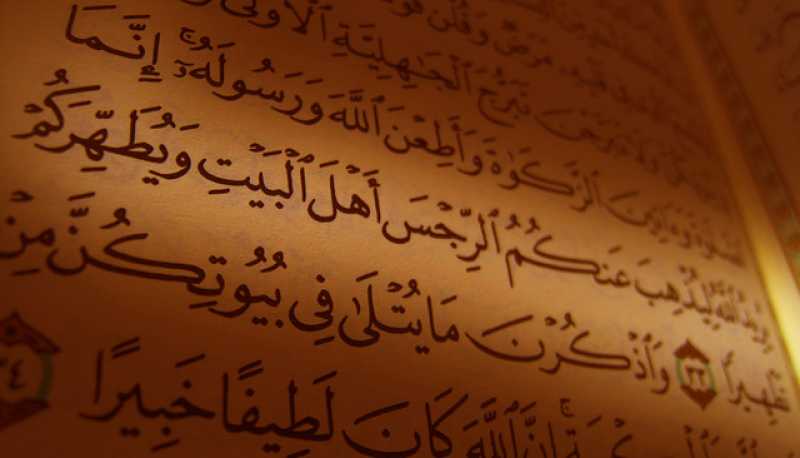 مَرَضٌ وَقُلْنَ
تَبَرُّجَ ٱلْجَٰهِلِيَّةِ ٱلْأُولَىٰ
وَءَاتِينَ ٱلزَّكَوٰةَ وَأَطِعْنَ ٱللَّهَ وَرَسُولَهُۥٓ ۚ إِنَّمَا
يُرِيدُ ٱللَّهُ لِيُذْهِبَ عَنكُمُ ٱلرِّجْسَ أَهْلَ ٱلْبَيْتِ وَيُطَهِّرَكُمْ
تَطْهِيرًا ٣٣ وَٱذْكُرْنَ مَا يُتْلَىٰ فِي بُيُوتِكُنَّ مِنْ
إِنَّ ٱللَّهَ كَانَ لَطِيفًا خَبِيرًا ٣٤